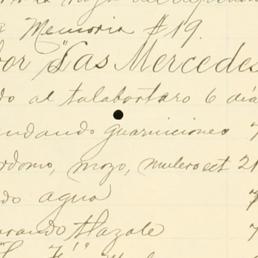 Memoria #19.
or "Las Mercedes
do al talabartero 6 día
ndando guarniciones 7
rdomo, mozo, mulero ect 21
do agua 7
rando Alazale 7